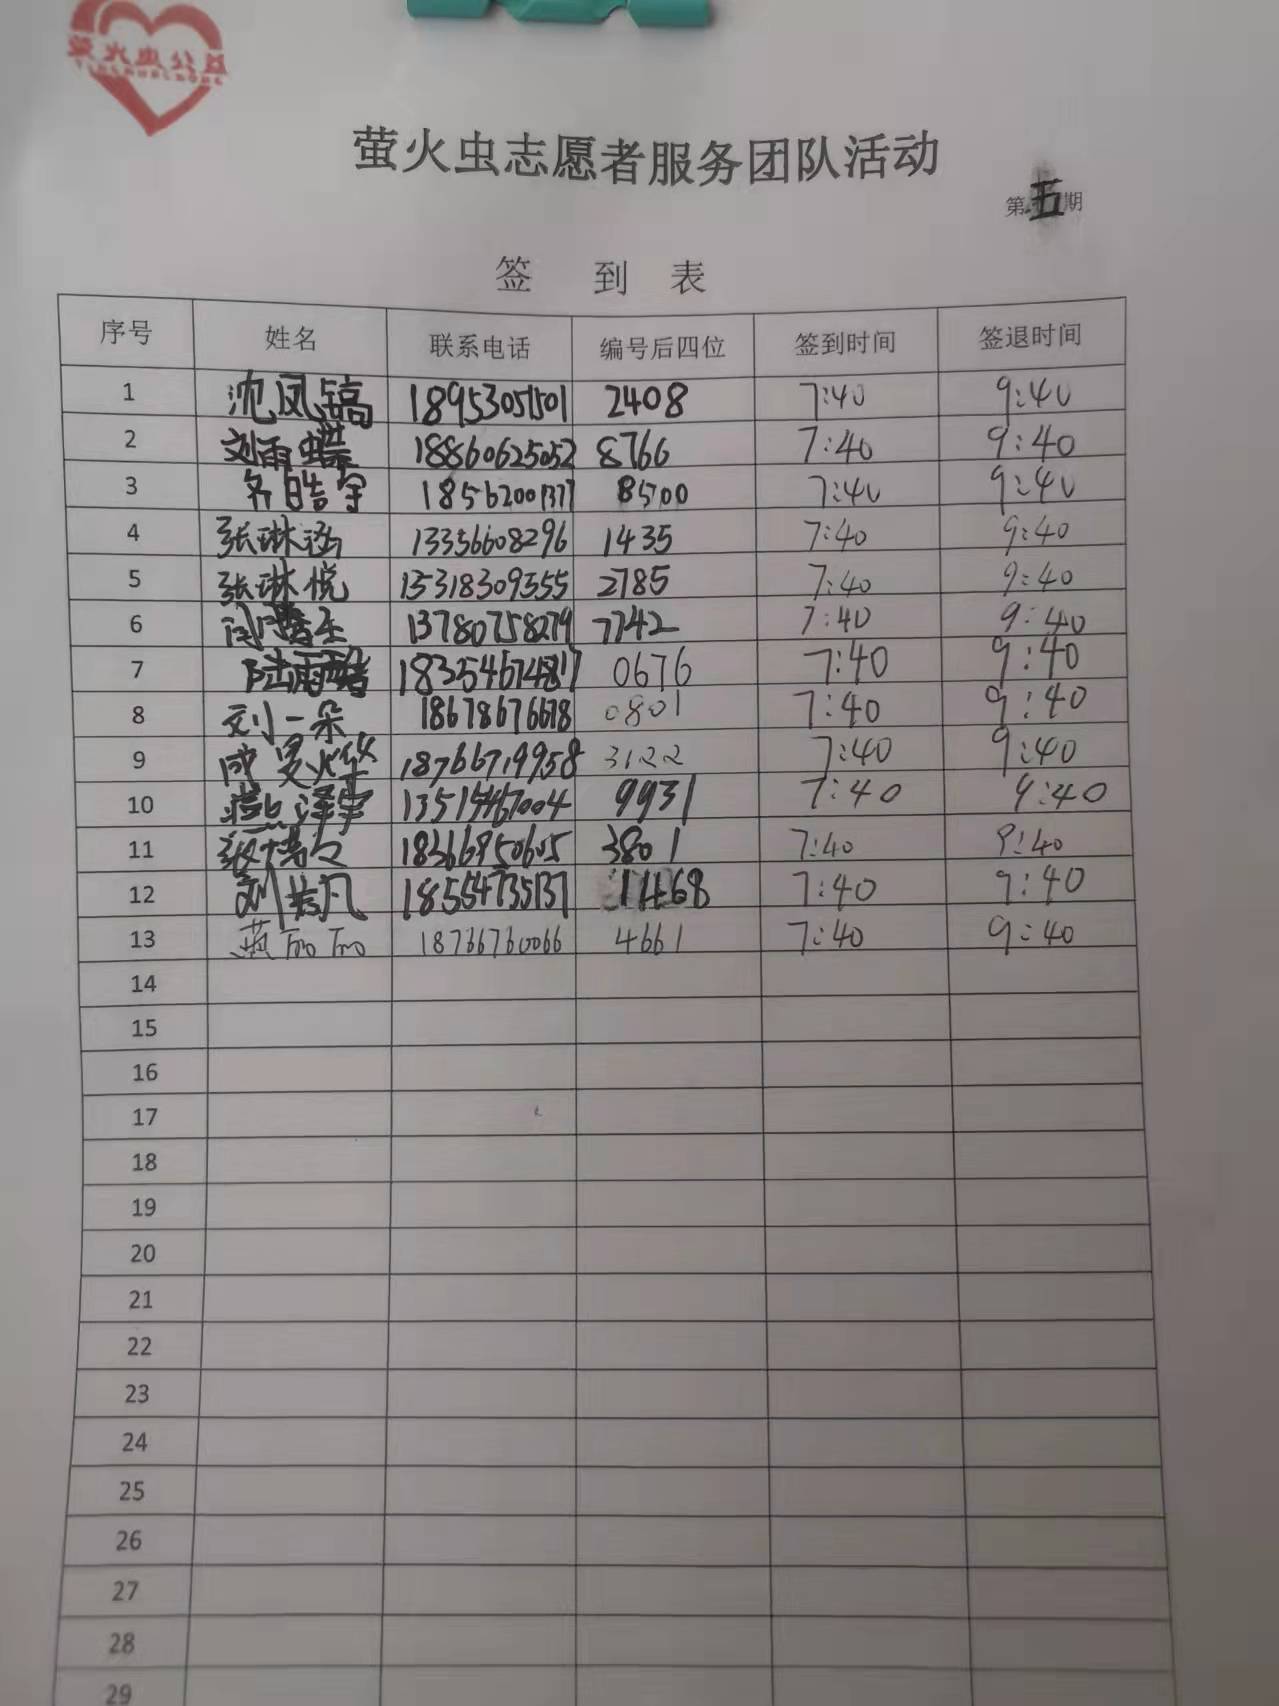 萤火虫公益
萤火虫志愿者服务团队活动
第五期
签到表
序号 姓名 联系电话 编号后四位 签到时间 签退时间
1 沈凤镐 18953051501 2408 7:40 9:40
2 刘雨蝶 18860625052 8766 7:40 9:40
3 皓宇 18562001377 8500 7:40 9:40
4 张琳涵 13356608296 1435 7:40 9:40
5 张琳悦 15318309555 2785 7:40 9:40
6 13780758279 7742 7:40 9:40
7 陆雨 18354674817 0676 7:40 9:40
8 刘一朵 18678676678 0801 7:40 9:40
9 18766719958 3122 7:40 9:40
10 泽宇 9931 7:40 9:40
11 18366950605 3801 7:40 9:40
12 刘 凡 18554735137 1468 7:40 9:40
13 燕 18766760066 4661 7:40 9:40
14
15
16
17
18
19
20
21
22
23
24
25
26
27
28
29